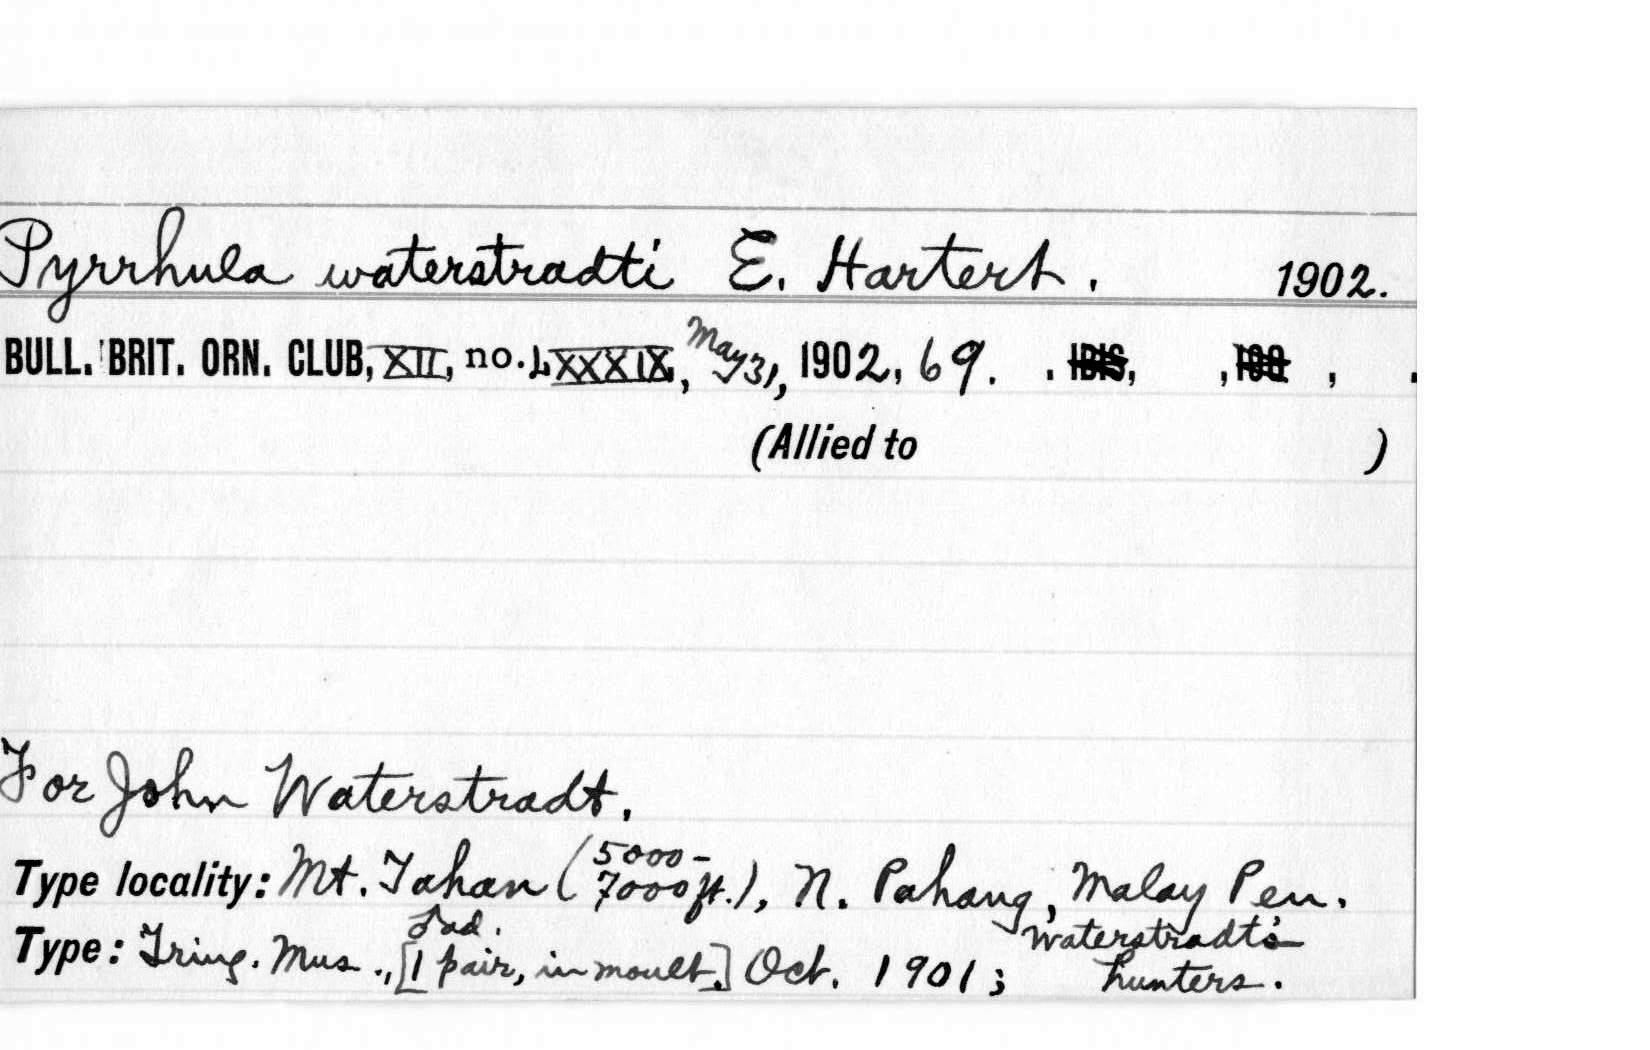 Pyrrhula waterstradti E. Hartert. 1902.
BULL. BRIT. ORN. CLUB, XII, no. LXXXIX, May 31, 1902, 69. . IBIS, , 190 , .
(Allied to )
For John Waterstradt.
Type locality: Mt. Tahan (5000-7000 ft.), N. Pahang, Malay Pen.
Type: Tring. Mus., ad. [1 pair, in moult.] Oct. 1901; Waterstradt's hunters.